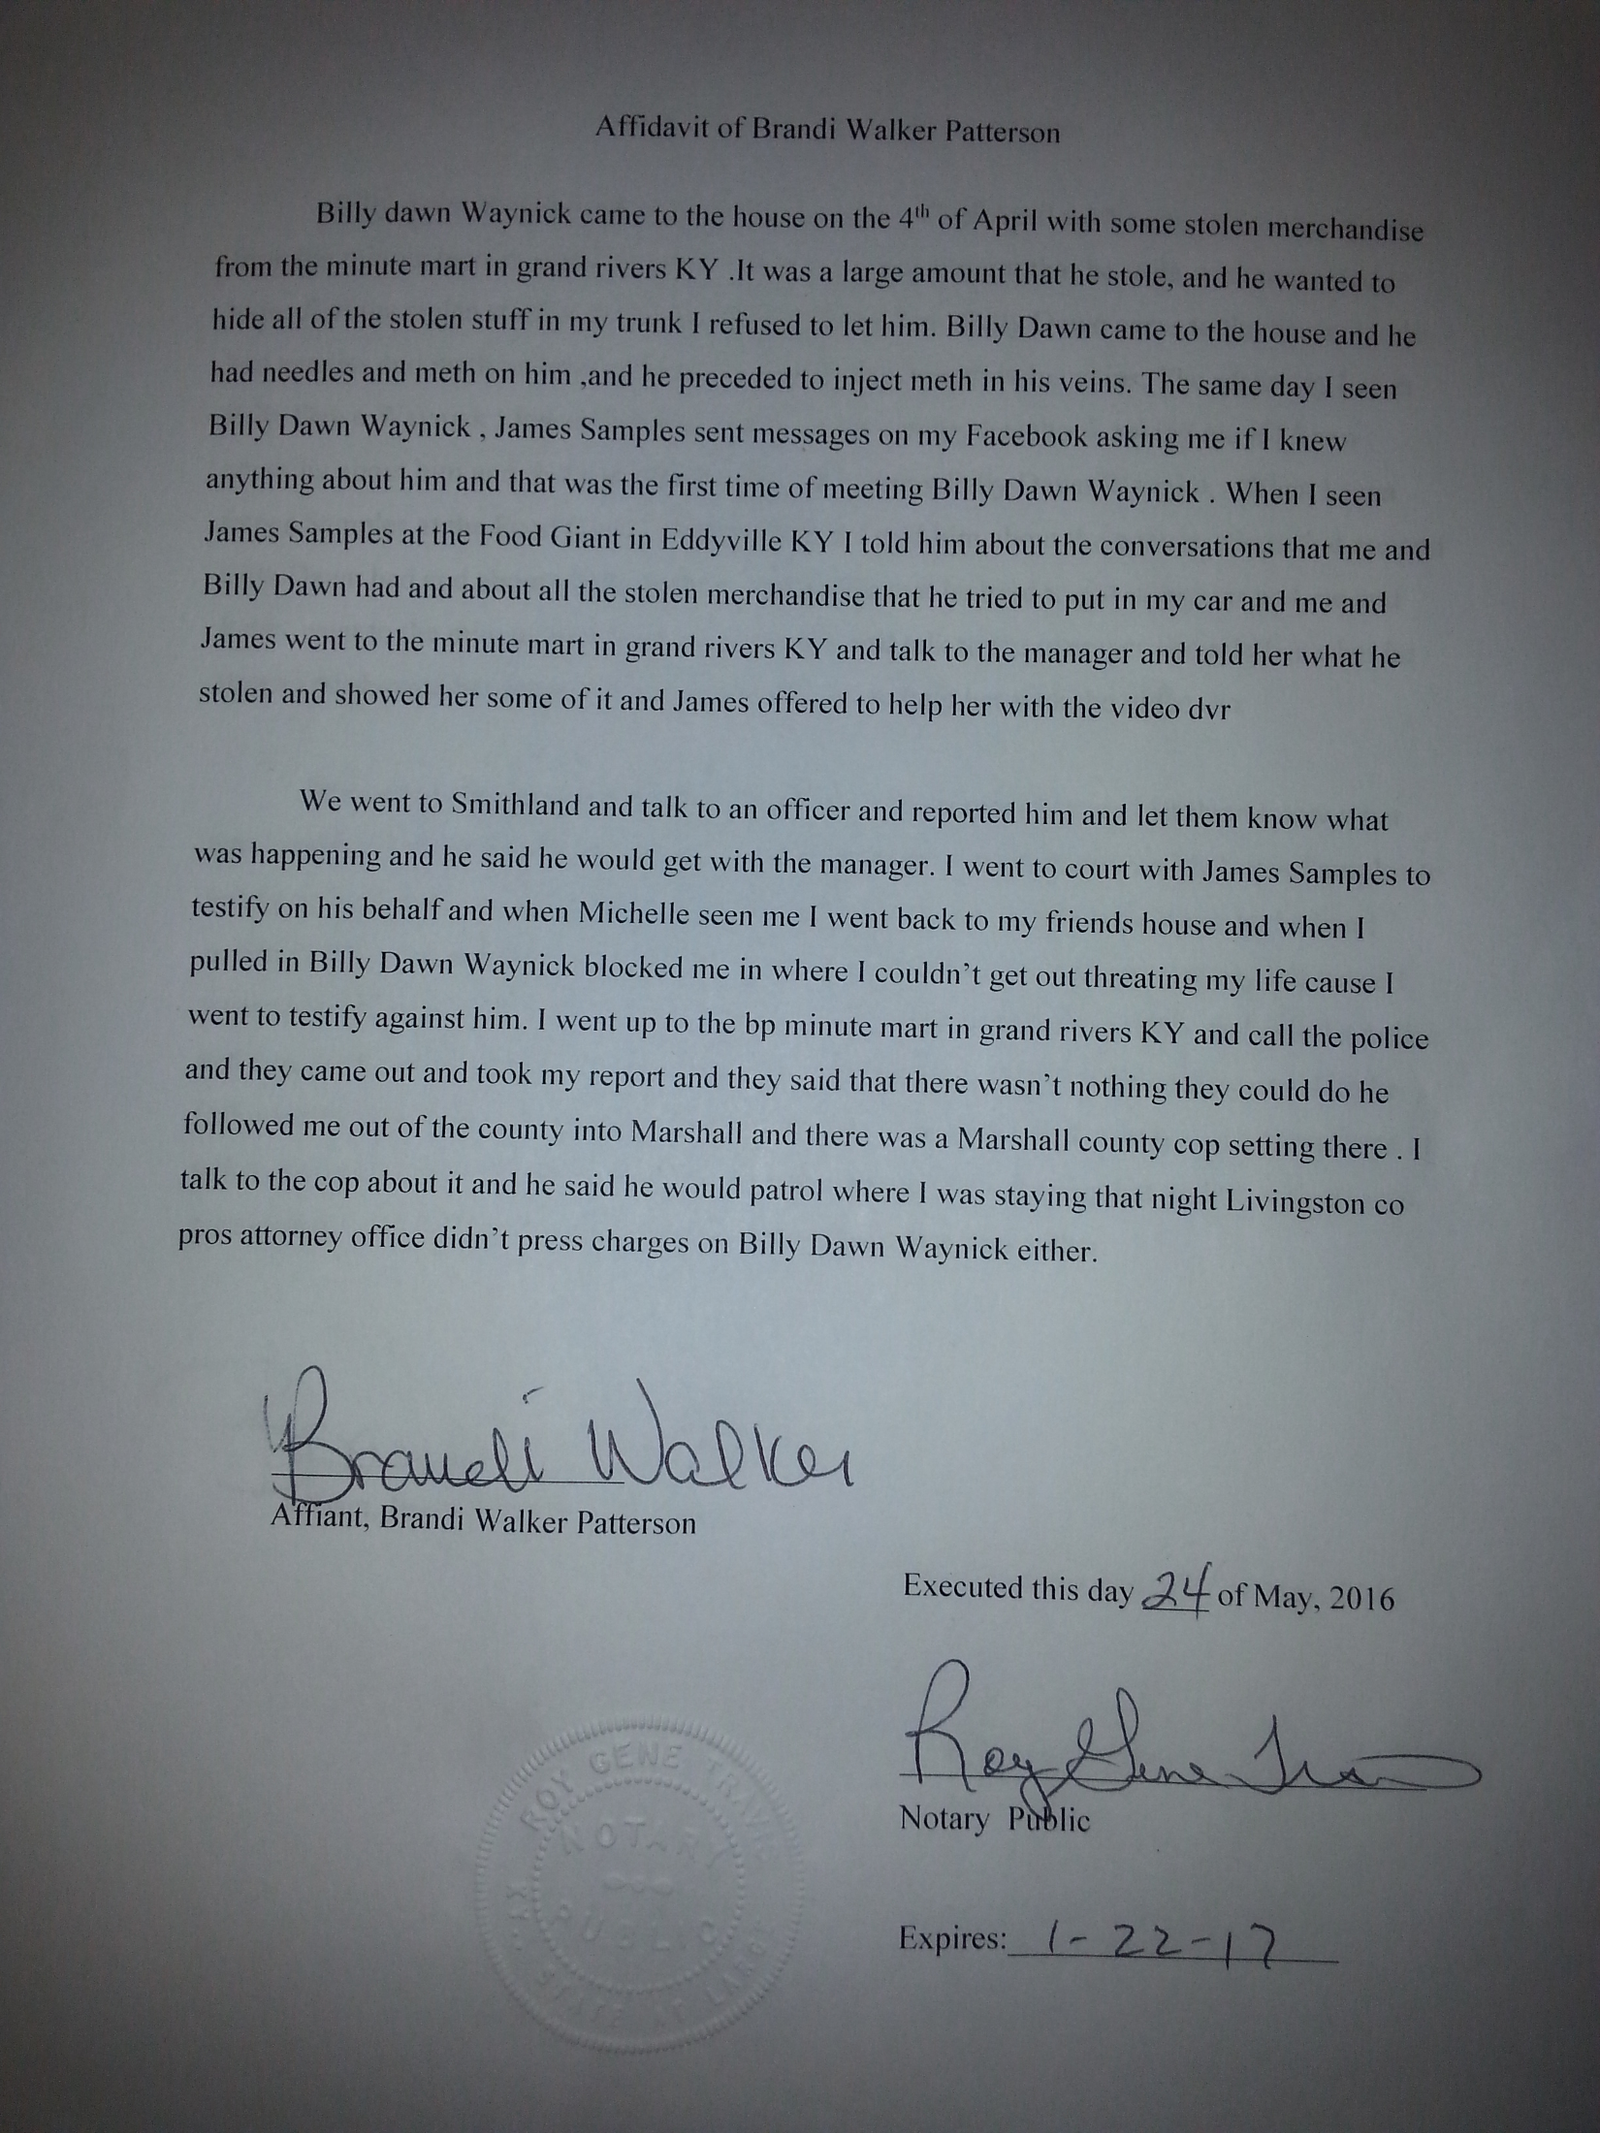 Affidavit of Brandi Walker Patterson
Billy dawn Waynick came to the house on the 4th of April with some stolen merchandise
from the minute mart in grand rivers KY .It was a large amount that he stole, and he wanted to
hide all of the stolen stuff in my trunk I refused to let him. Billy Dawn came to the house and he
had needles and meth on him ,and he preceded to inject meth in his veins. The same day I seen
Billy Dawn Waynick , James Samples sent messages on my Facebook asking me if I knew
anything about him and that was the first time of meeting Billy Dawn Waynick . When I seen
James Samples at the Food Giant in Eddyville KY I told him about the conversations that me and
Billy Dawn had and about all the stolen merchandise that he tried to put in my car and me and
James went to the minute mart in grand rivers KY and talk to the manager and told her what he
stolen and showed her some of it and James offered to help her with the video dvr
We went to Smithland and talk to an officer and reported him and let them know what
was happening and he said he would get with the manager. I went to court with James Samples to
testify on his behalf and when Michelle seen me I went back to my friends house and when I
pulled in Billy Dawn Waynick blocked me in where I couldn't get out threating my life cause I
went to testify against him. I went up to the bp minute mart in grand rivers KY and call the police
and they came out and took my report and they said that there wasn't nothing they could do he
followed me out of the county into Marshall and there was a Marshall county cop setting there . I
talk to the cop about it and he said he would patrol where I was staying that night Livingston co
pros attorney office didn't press charges on Billy Dawn Waynick either.
Brandi Walker
Affiant, Brandi Walker Patterson
Executed this day 24 of May, 2016
Roy Gene
Notary Public
ROY GENE
NOTARY
PUBLIC
STATE AT LARGE
Expires: 1-22-17